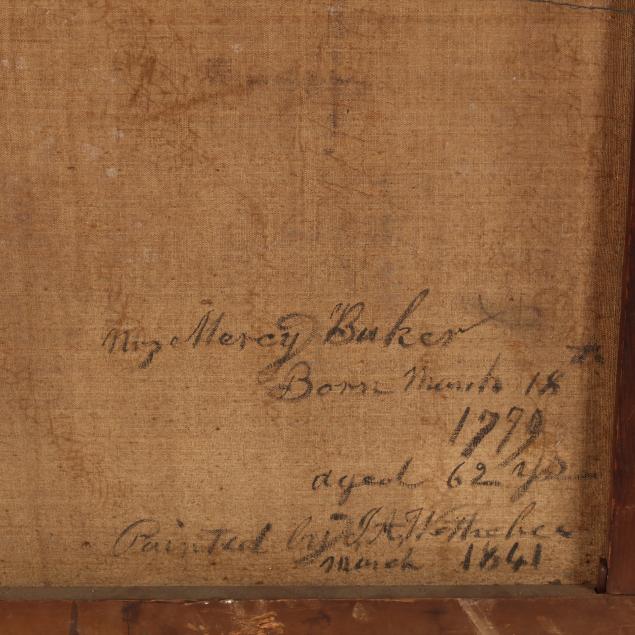 Mrs Mercy Baker
Born March 18th
1779
aged 62 yrs
Painted by
March 1841